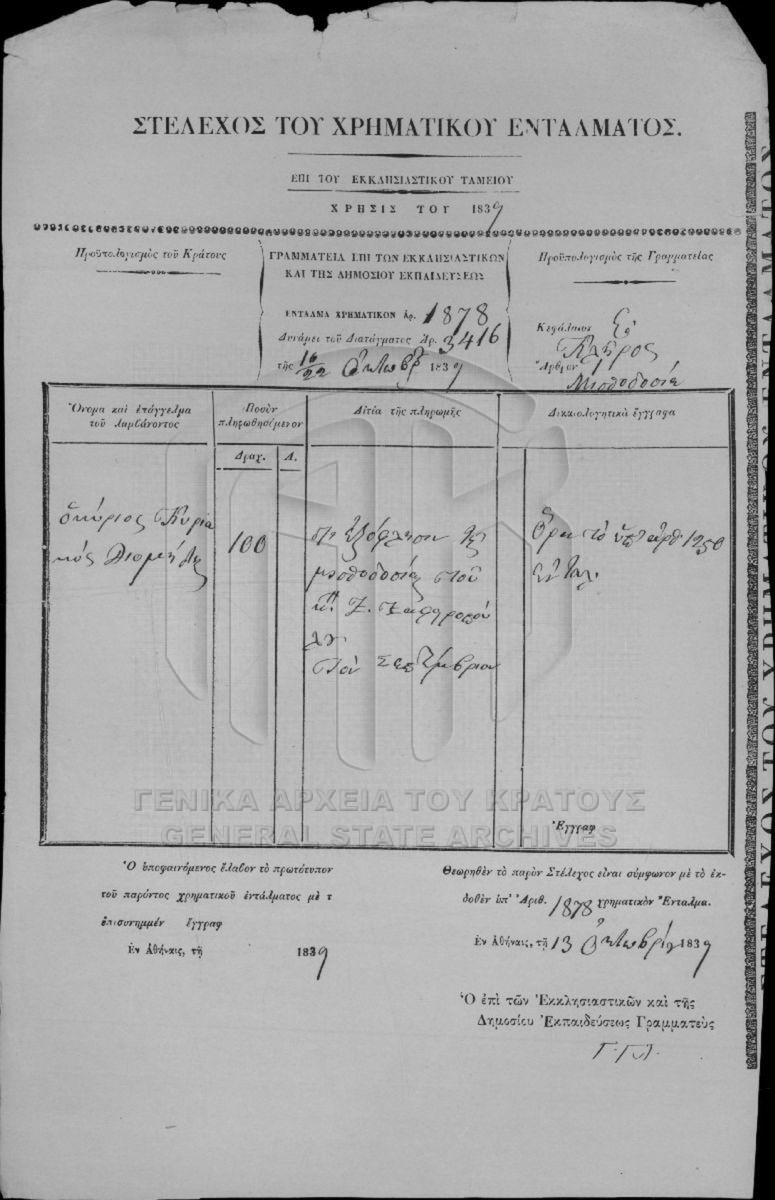 ΣΤΕΛΕΧΟΣ ΤΟΥ ΧΡΗΜΑΤΙΚΟΥ ΕΝΤΑΛΜΑΤΟΣ.
ΕΠΙ ΤΟΥ ΕΚΚΛΗΣΙΑΣΤΙΚΟΥ ΤΑΜΕΙΟΥ
ΧΡΗΣΙΣ ΤΟΥ 1839
Προϋπολογισμὸς τοῦ Κράτους
ΓΡΑΜΜΑΤΕΙΑ ΕΠΙ ΤΩΝ ΕΚΚΛΗΣΙΑΣΤΙΚΩΝ
ΚΑΙ ΤΗΣ ΔΗΜΟΣΙΟΥ ΕΚΠΑΙΔΕΥΣΕΩΣ
ΕΝΤΑΛΜΑ ΧΡΗΜΑΤΙΚΟΝ Ἀρ. 1878
Δυνάμει τοῦ Διατάγματος Ἀρ. 3416
τῆς 10/22 Ὀκτωβρ 1839
Προϋπολογισμὸς τῆς Γραμματείας
Κεφάλαιον
Κλῆρος
Ἄρθρον 1
Μισθοδοσία
Ὄνομα καὶ ἐπάγγελμα
τοῦ λαμβάνοντος
Ποσὸν
πληρωθησόμενον
Δραχ. Λ.
Αἰτία τῆς πληρωμῆς
Δικαιολογητικὰ ἔγγραφα
ὁ κύριος Κυρια
κὸς
100
ἐξόφλησιν τῆς
μισθοδοσίας τοῦ
τὸν Σεπτέμβριον
Ὅρα τὸ ὑπ' ἀριθ. 1250
ἐνταλ.
Ἔγγραφ
ΓΕΝΙΚΑ ΑΡΧΕΙΑ ΤΟΥ ΚΡΑΤΟΥΣ
GENERAL STATE ARCHIVES
Ὁ ὑποφαινόμενος ἔλαβον τὸ πρωτότυπον
τοῦ παρόντος χρηματικοῦ ἐντάλματος μὲ τ
ἐπισυνημμέν ἔγγραφ
Ἐν Ἀθήναις, τῇ 1839
Θεωρηθὲν τὸ παρὸν Στέλεχος εἶναι σύμφωνον μὲ τὸ ἐκ-
δοθὲν ὑπ' Ἀριθ. 1878 χρηματικὸν Ἔνταλμα.
Ἐν Ἀθήναις, τῇ 13 Ὀκτωβρίου 1839
Ὁ ἐπὶ τῶν Ἐκκλησιαστικῶν καὶ τῆς
Δημοσίου Ἐκπαιδεύσεως Γραμματεὺς
ΣΤΕΛΕΧΟΣ ΤΟΥ ΧΡΗΜΑΤΙΚΟΥ ΕΝΤΑΛΜΑΤΟΣ